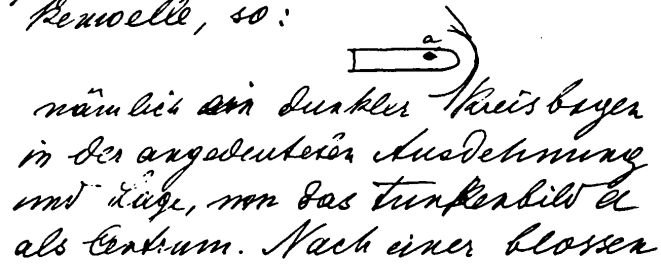 so:
a
nämlich ein dunkler Kreisbogen
in der angedeuteten Ausdehnung
und Lage, um das Funkenbild a
als Centrum. Nach einer blossen